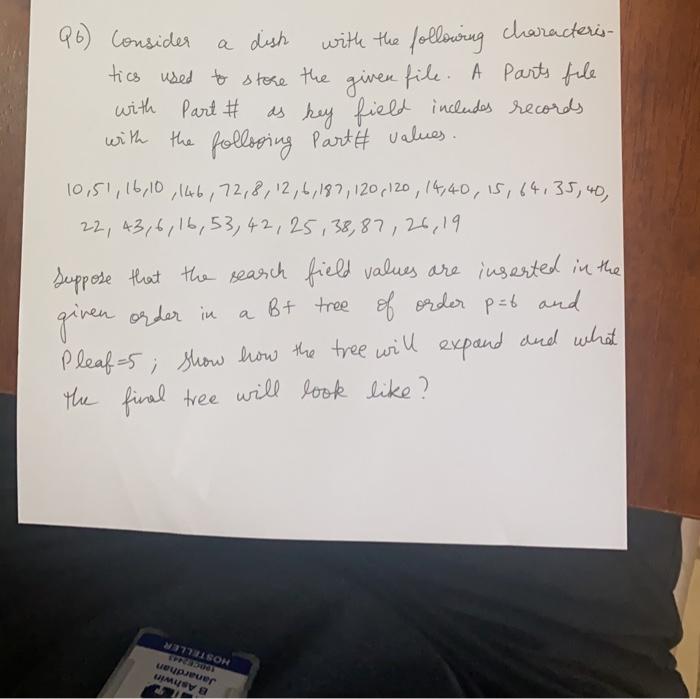 Q6) Consider a dish with the following characteris-
tics used to store the given file. A Parts file
with Part # as key field includes records
with the following Part# values.
10,51,16,10,146,72,8,12,6,187,120,120,14,40,15,64,35,40,
22, 43,6,16,53,42,25,38,87,26,19
Suppose that the search field values are inserted in the
given order in a B+ tree of order p=6 and
Pleaf=5; show how the tree will expand and what
the final tree will look like?
HOSTELLER
Janardhan
B Ashwin